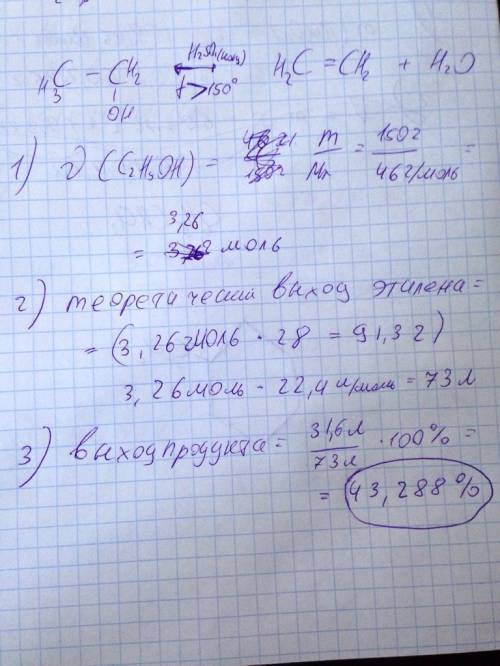 H₂SO₄(конц)
H₃C – CH₂ ⇄ H₂C = CH₂ + H₂O
OH t>150°
1) ν (C₂H₅OH) = m/Mr = 150г/46г/моль =
= 3,26 моль
2) теоретический выход этилена =
= (3,26 моль · 28 = 91,3 г)
3,26 моль · 22,4 л/моль = 73 л
3) выход продукта = 31,6л/73л · 100% =
= 43,288%